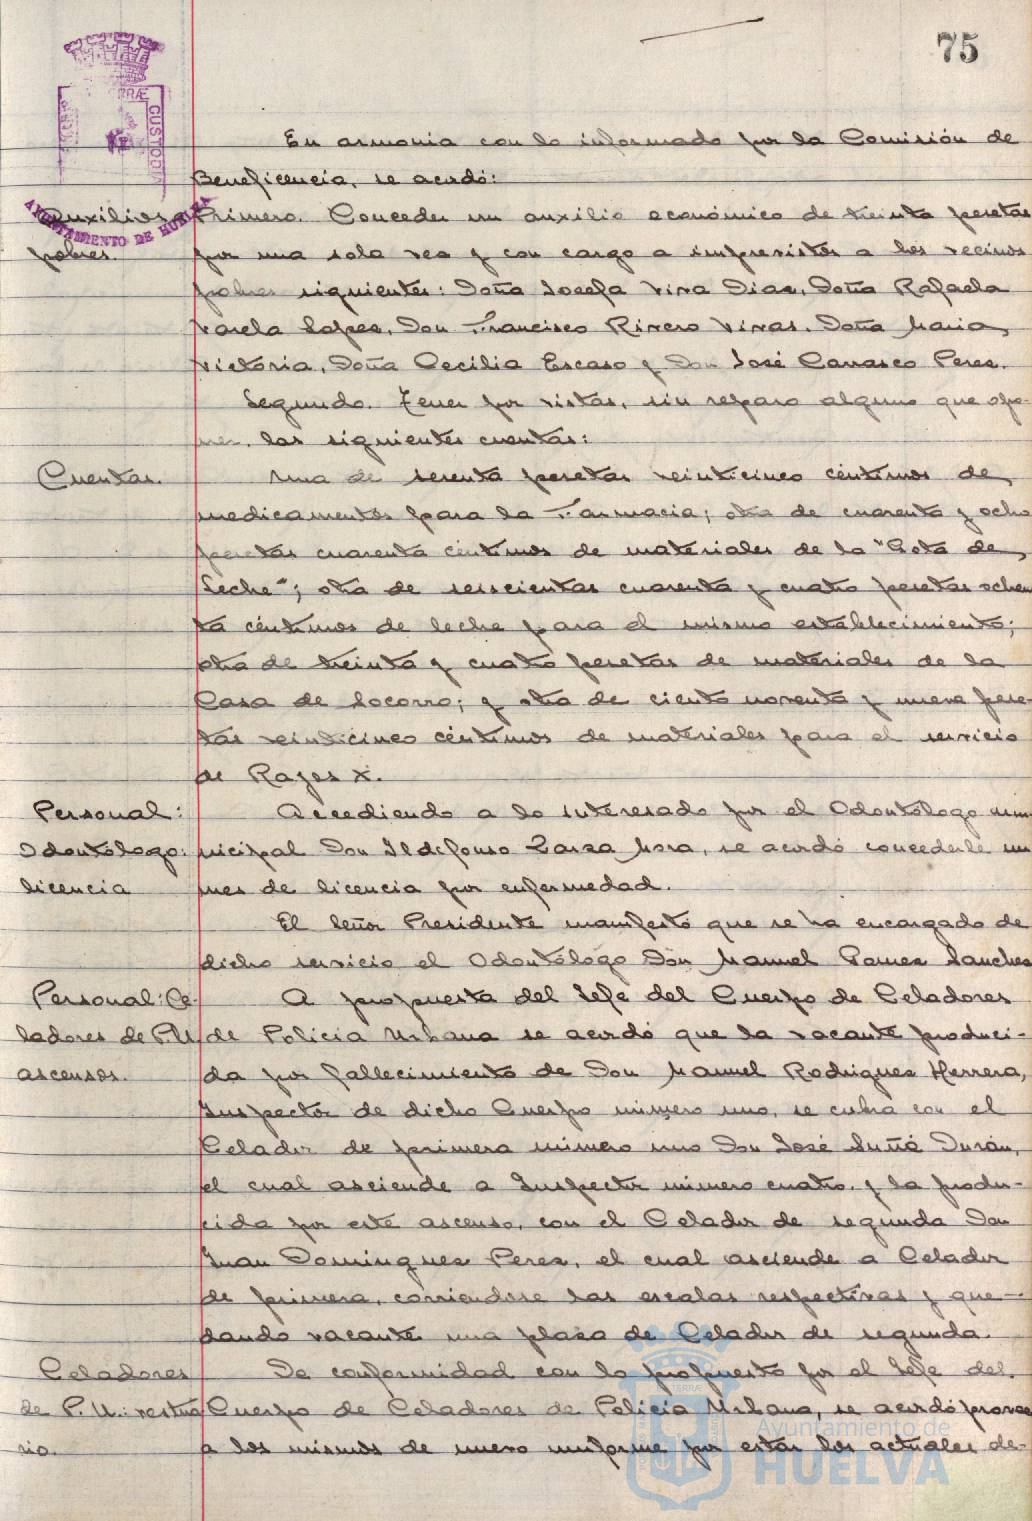 75
En armonia con lo informado por la Comisión de
Beneficencia, se acordó:
Auxilios a Primero. Conceder un auxilio económico de treinta pesetas
pobres. por una sola vez y con cargo a imprevistos a los vecinos
pobres siguientes: Doña Josefa Viva Diaz, Doña Rafaela
Varela Lopez, Don Francisco Rivero Vivas, Doña Maria
Victoria, Doña Cecilia Escaso y Don José Carrasco Perez.
Segundo. Tener por vistas, sin reparo alguno que opo-
ner, las siguientes cuentas:
Cuentas. Una de setenta pesetas veinticinco céntimos de
medicamentos para la Farmacia; otra de cuarenta y ocho
pesetas cuarenta céntimos de materiales de la "Gota de
Leche"; otra de seiscientas cuarenta y cuatro pesetas ochen
ta céntimos de leche para el mismo establecimiento;
otra de treinta y cuatro pesetas de materiales de la
Casa de Socorro; y otra de ciento noventa y nueve pese-
tas veinticinco céntimos de materiales para el servicio
de Rayos X.
Personal: Accediendo a lo interesado por el Odontólogo mu-
Odontólogo: nicipal Don Ildefonso Zarza Mora, se acordó concederle un
licencia mes de licencia por enfermedad.
El Señor Presidente manifestó que se ha encargado de
dicho servicio el Odontólogo Don Manuel Pomez Sanchez
Personal: Ce- A propuesta del Jefe del Cuerpo de Celadores
ladores de P.U. de Policia Urbana se acordó que la vacante produci-
ascensos. da por fallecimiento de Don Manuel Rodriguez Herrera,
Inspector de dicho Cuerpo número uno, se cubra con el
Celador de primera número uno Don José Suñé Durán,
el cual asciende a Inspector número cuatro, y la produ-
cida por este ascenso, con el Celador de segunda Don
Juan Dominguez Perez, el cual asciende a Celador
de primera, corriendose las escalas respectivas y que-
dando vacante una plaza de Celador de segunda.
Celadores De conformidad con lo propuesto por el Jefe del
de P.U.: vestua Cuerpo de Celadores de Policia Urbana, se acordó proveer
rio. a los mismos de nuevo uniforme por estar los actuales de-
AYUNTAMIENTO DE HUELVA
CUSTODIA
Ayuntamiento de
HUELVA